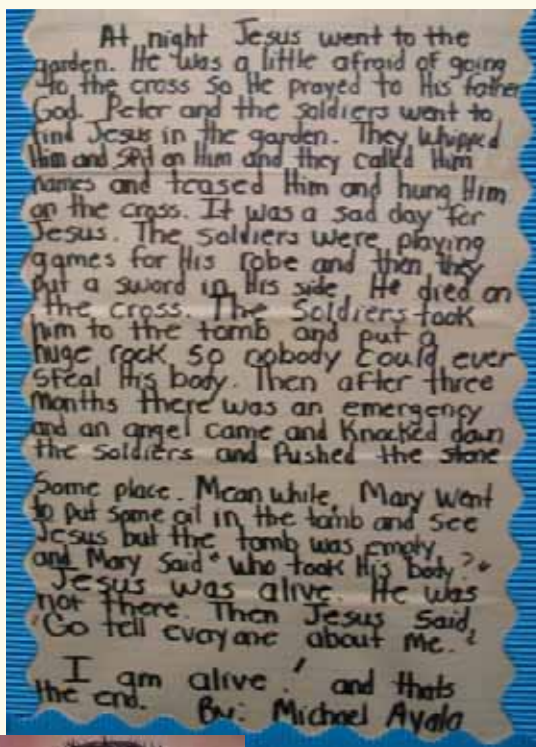 At night Jesus went to the
garden. He was a little afraid of going
to the cross so He prayed to His father
God. Peter and the soldiers went to
find Jesus in the garden. They whipped
Him and spit on Him and they called Him
names and teased Him and hung Him
on the cross. It was a sad day for
Jesus. The soldiers were playing
games for His robe and then they
put a sword in His side. He died on
the cross. The Soldiers took
him to the tomb and put a
huge rock so nobody could ever
steal His body. Then after three
months there was an emergency
and an angel came and Knocked down
the soldiers and Pushed the stone
Some place. Mean while, Mary went
to put some oil in the tomb and see
Jesus but the tomb was empty
and Mary said "who took His body?"
Jesus was alive. He was
not there. Then Jesus said,
"Go tell everyone about me."
I am alive!" and thats
the end. By: Michael Ayala